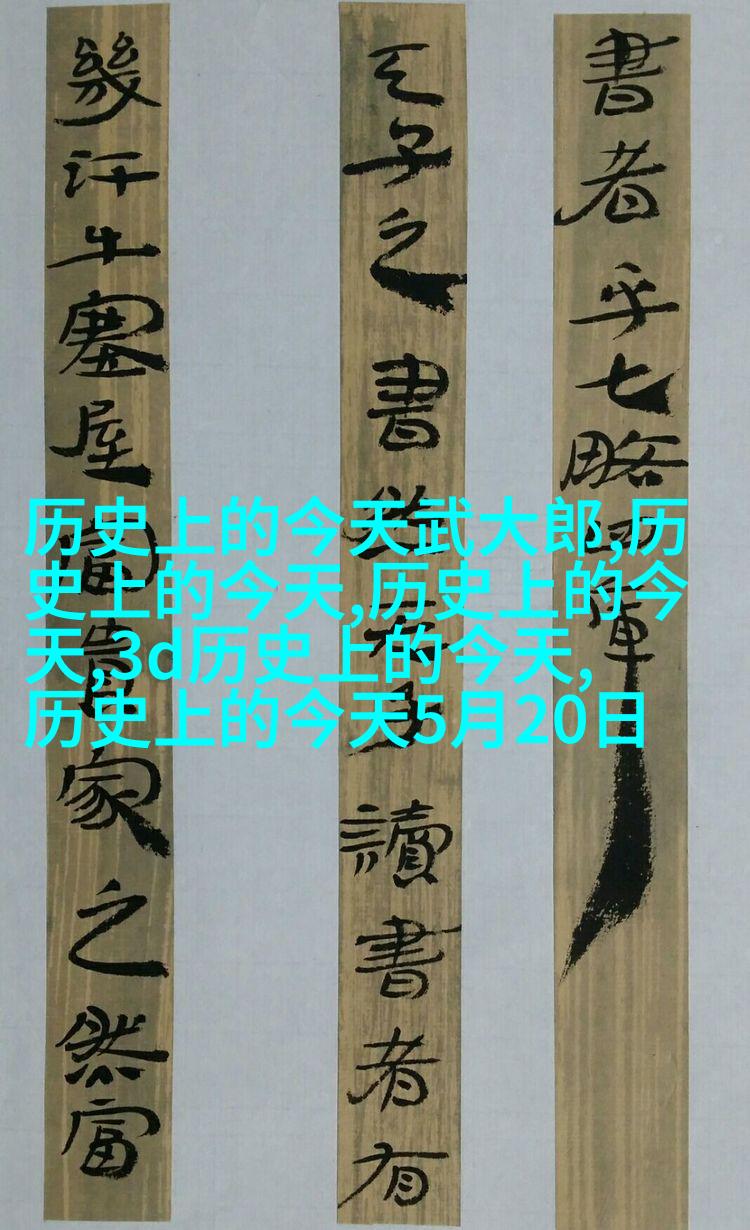 書者乎七略四庫
天子之書然天子讀書者有
幾汗牛塞屋富貴家之然富
历史上的今天武大郎,历
史上的今天,历史上的今
天,3d历史上的今天,
历史上的今天5月20日